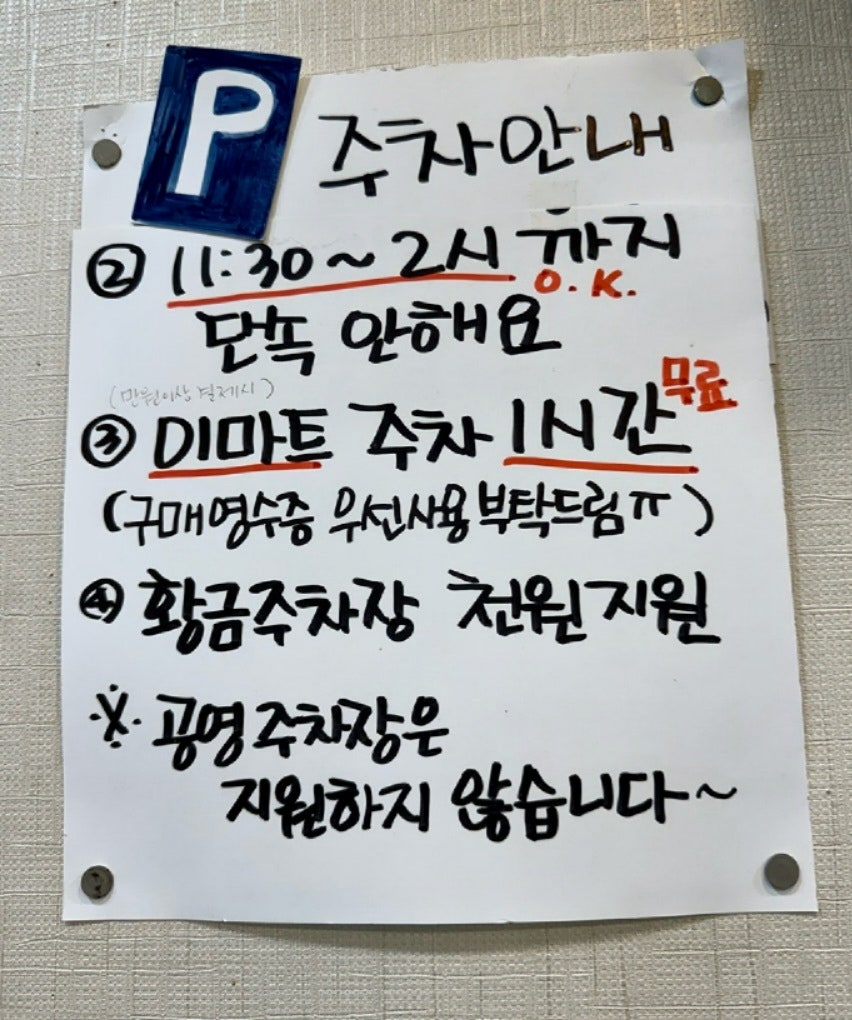 P 주차안내
② 11:30~2시 까지
O.K.
단속 안해요
(만원이상 결제시)
③ 미마트 주차 1시간 무료
(구매영수증 우선사용 부탁드림ㅠ)
④ 황금주차장 천원지원
※ 공영주차장은
지원하지 않습니다~